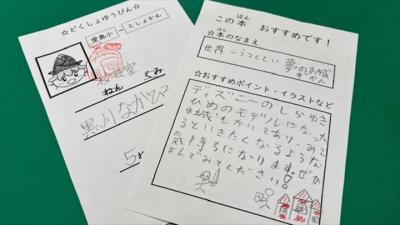 ☆どくしょゆうびん☆
堂島小 → としょかん
教室
ねん
くみ
この本 おすすめです！
ほん
☆本のなまえ
世界一うつくしい 夢のお城
ずかん
☆おすすめポイント・イラストなど
ディズニーのしらゆき
ひめのモデルになった
お城もかいてあり、みて
いきたくなるような
気持ちになります。ぜひ
よんでみてください！